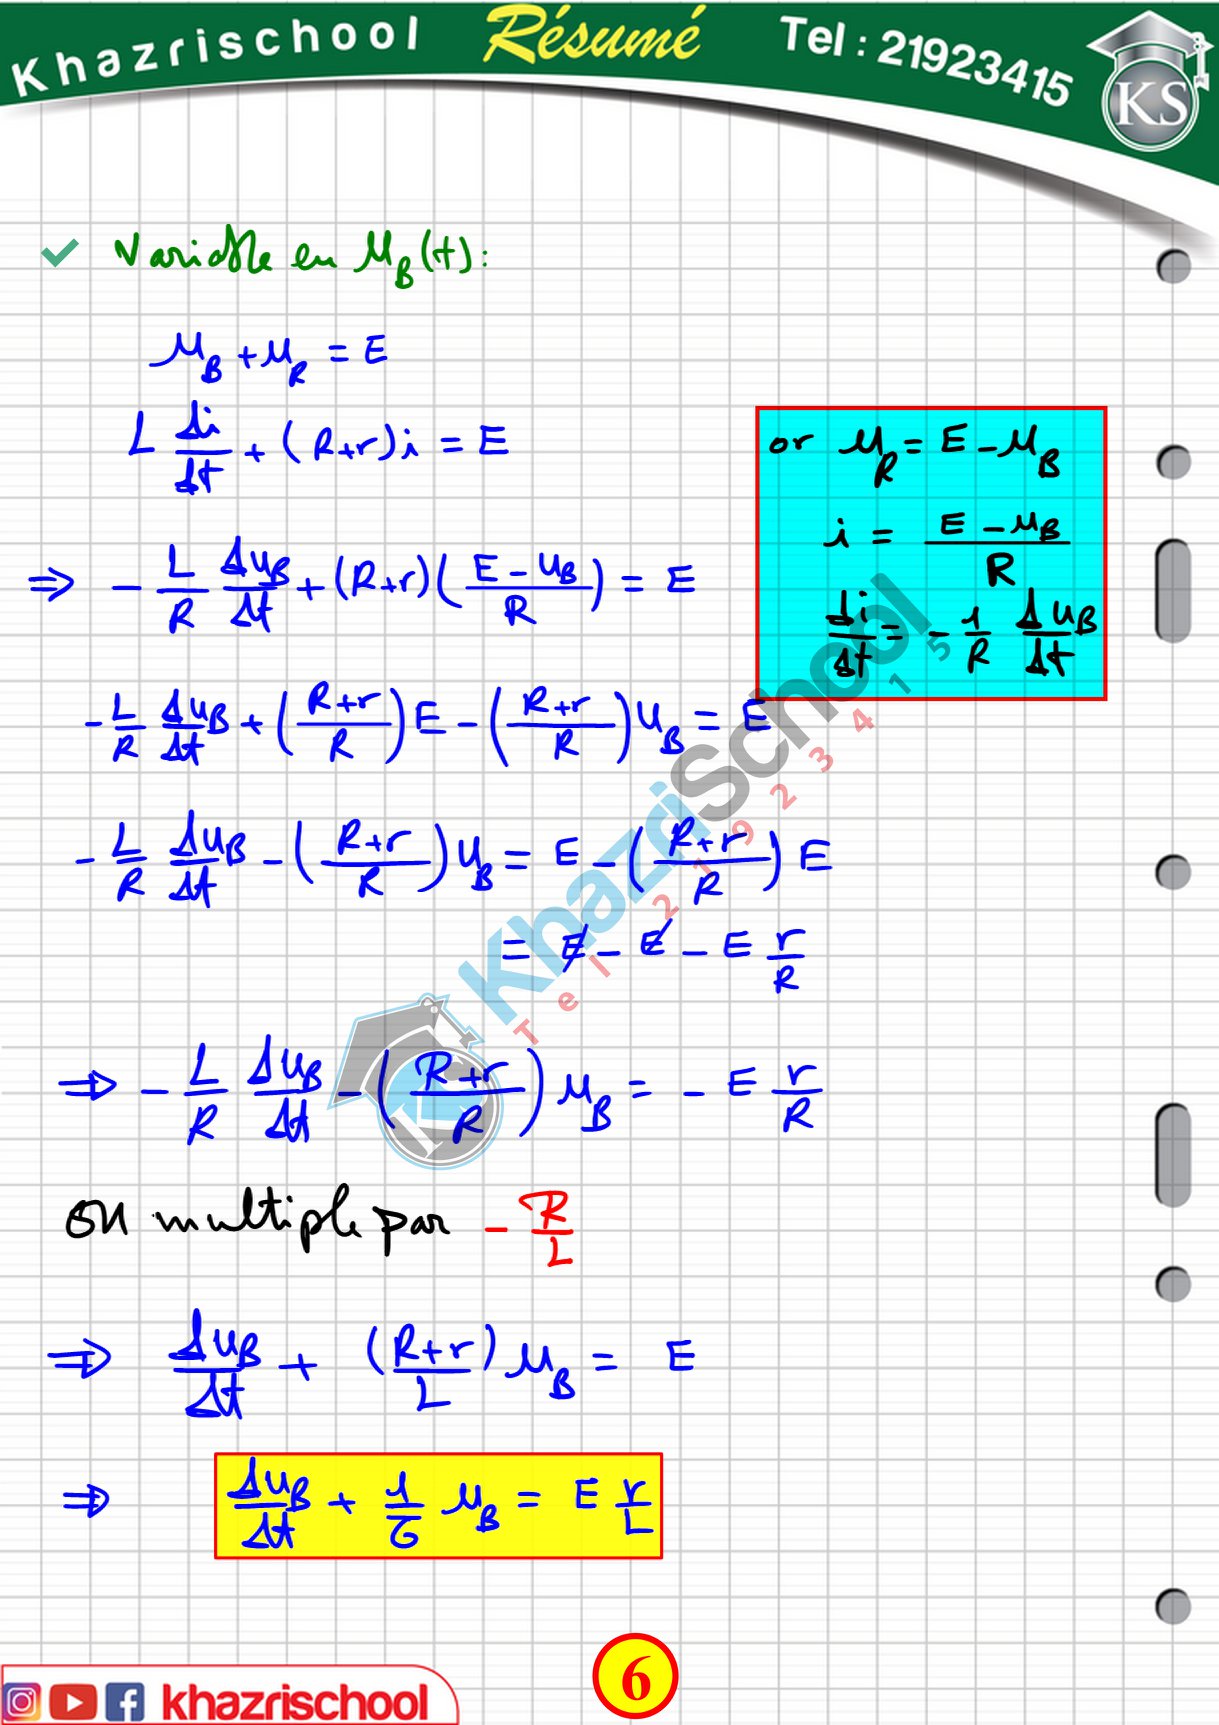 Khazrischool Résumé Tel : 21923415
KS
✓ Variable en u_B(t):
u_B + u_R = E
L di/dt + (R+r)i = E
or u_R = E - u_B
i = (E - u_B)/R
di/dt = - 1/R du_B/dt
⇒ - L/R du_B/dt + (R+r)((E - u_B)/R) = E
- L/R du_B/dt + ((R+r)/R)E - ((R+r)/R)u_B = E
- L/R du_B/dt - ((R+r)/R)u_B = E - ((R+r)/R) E
= E - E - E r/R
⇒ - L/R du_B/dt - ((R+r)/R) u_B = - E r/R
on multiple par - R/L
⇒ du_B/dt + (R+r)/L u_B = E
⇒ du_B/dt + 1/τ u_B = E r/L
KhazriSchool
Tel 21923415
KS
6
khazrischool